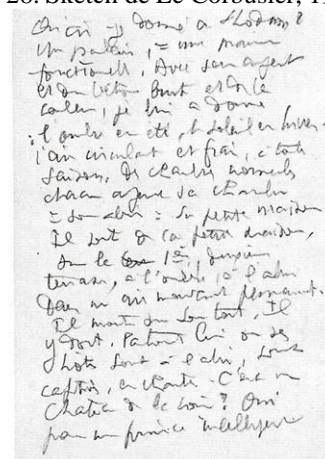 28. Sketch de Le Corbusier, 1
Qu'ai-je donné à Shodan?
Un palais, = une maison
fonctionnelle, Avec son argent
et du béton brut et de la
couleur, je lui ai donné
: l'ombre en été, le soleil en hiver,
l'air circulant et frai, à toute
saison, Des chambres
chacun a sa chambre
= son abri = sa petite maison
Il sort de sa petite maison,
sur le 1er, deuxième
terrasse, à l'ombre, à l'abri
Dans un air mouvant permanent.
Il monte sur son toit, Il
y dort, Partout lui ou ses
hôtes sont à l'abri, sont
captés, C'est un
Chateau de la Loire? Oui
pour un prince intelligent